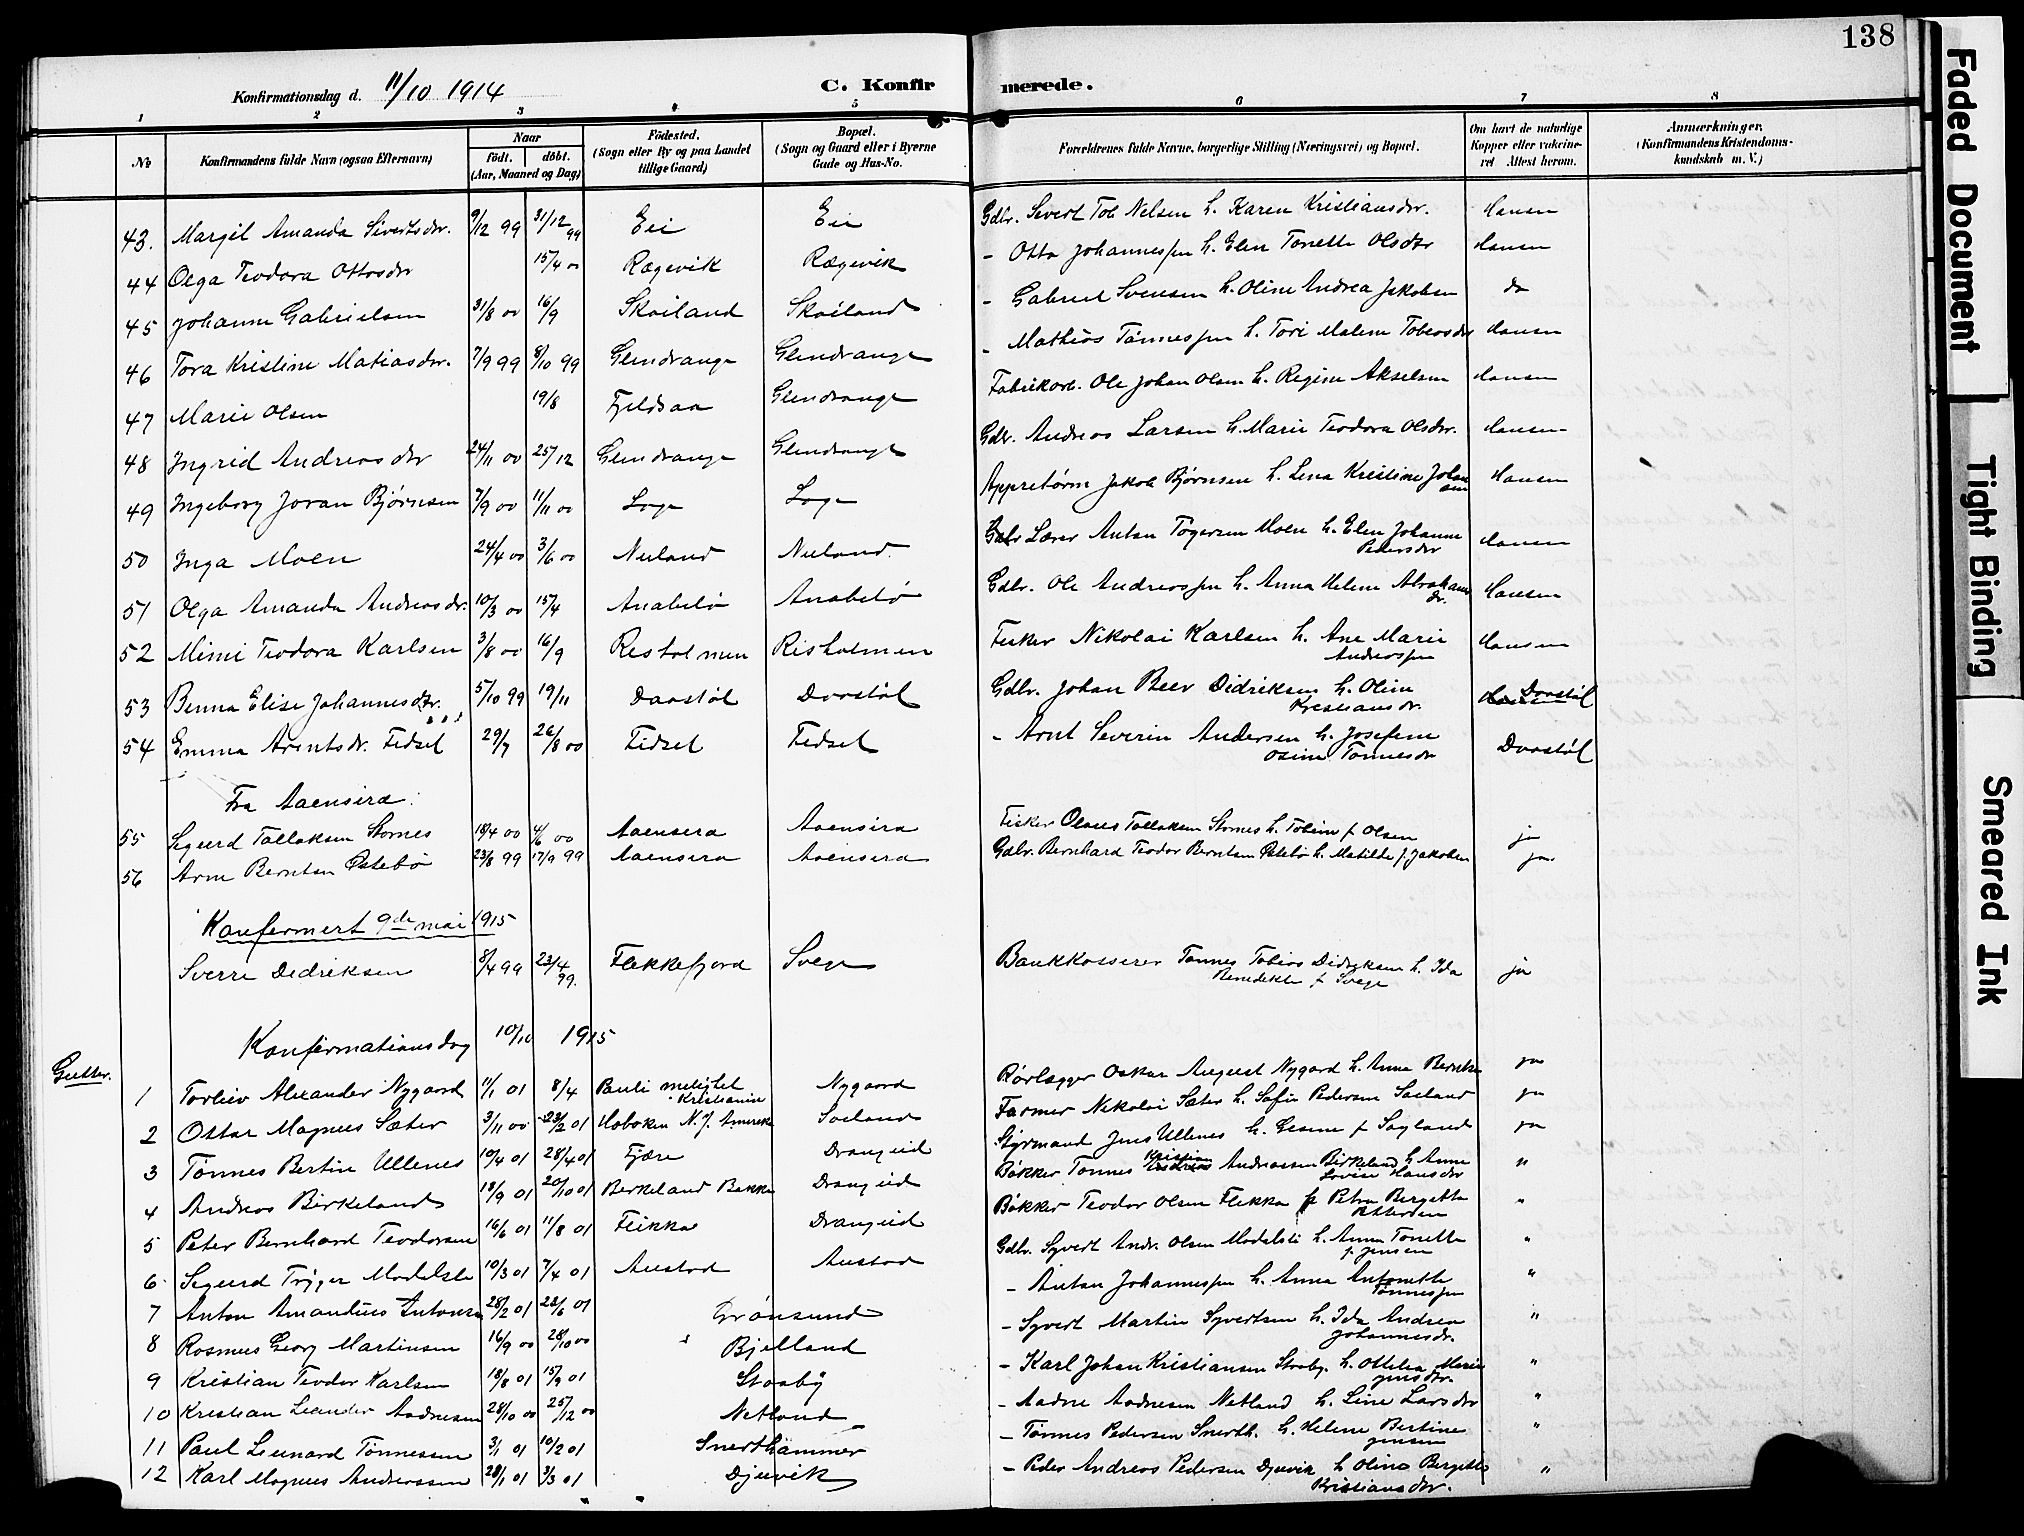 138
Konfirmationsdag d. 11/10 1914
C. Konfirmerede.
1 2 3 4 5 6 7 8
No
Konfirmandens fulde Navn (ogsaa Efternavn)
Naar
født. døbt.
(Aar, Maaned og Dag)
Fødested.
(Sogn eller By og paa Landet
tillige Gaard)
Bopæl.
(Sogn og Gaard eller i Byerne
Gade og Hus-No.
Forældrenes fulde Navne, borgerlige Stilling (Næringsvei) og Bopæl.
Om havt de naturlige
Kopper eller vakcine-
ret Attest herom.
Anmærkninger.
(Konfirmandens Kristendoms-
kundskab m. V.)
43. Margit Amanda Sivertsdr. 9/12 99 31/12 99 Eie Eie Gdbr. Sivert Tob Nelsen h. Karen Kristiansdr. Hansen
44 Olga Teodora Ottosdr 15/4 00 Rægevik Rægevik - Otto Johannessen h. Elen Tonette Olsdtr Hansen
45 Johanne Gabrielsen 31/8 00 16/9 Skoiland Skoiland - Gabriel Svensen h. Oline Andrea Jakobsen do
46 Tora Kristine Matiasdr. 7/9 99 8/10 99 Glendrange Glendrange - Mathias Tønnessen h. Tori Malene Tobiasdr Hansen
47 Marie Olsen 19/8 Fjeldsaa Glendrange Fabrikarb. Ole Johan Olsen h. Regine Akselsen Hansen
48 Ingrid Andreasdr 24/11 00 25/12 Glendrange Glendrange Gdbr. Andreas Larsen h. Marie Teodora Olsdr. Hansen
49 Ingeborg Joran Bjørnsen 7/9 00 11/11 00 Loge Loge Appretørm Jakob Bjørnsen h. Lena Kristine Johan
sen Hansen
50 Inga Moen 24/4 00 3/6 00 Nuland Nuland Gdbr Lærer Anton Tøgersen Moen h. Elen Johanne
Pedersdr Hansen
51 Olga Amanda Andreasdr. 10/3 00 15/4 Anabelø Anabelø Gdbr. Ole Andreassen h. Anna Helene Abrahams
dr. Hansen
52 Mimi Teodora Karlsen 3/8 00 16/9 Risholmen Risholmen Fisker Nikolai Karlsen h. Ane Marie
Andreassen Hansen
53 Benna Elise Johannesdr. 5/10 99 19/11 Daastøl Daastøl Gdbr. Johan Beer Didriksen h. Oline
Kristiansdr. Daastøl
54 Emma Arentsdr. Fidsel 29/7 26/8 00 Fidsel Fidsel - Arnt Severin Andersen h. Josefine
Osine Tønnesdr Daastøl
Fra Aaensira:
55 Sigurd Tollaksen Stornes 18/4 00 4/6 00 Aaensera Aaensira Fisker Olaus Tollaksen Stornes h. Tobine f. Olsen ja
56 Arne Berntsen Østebø 23/8 99 17/9 99 Aaensera Aaensera Gdbr. Bernhard Teodor Berntsen Østebø h. Matilde f. Jakobsen ja
Konfermert 9de mai 1915
Sverre Didriksen 8/4 99 23/4 99. Flekkefjord Svege Bankkasserer Tønnes Tobias Didriksen h. Ida
Benedikte f Svege ja
Konfirmationsdag 10/10 1915
Gutter.
1 Torleiv Alexander Nygaard 11/1 01 8/4 Pauli menighet
Kristiania Nygaard Rørlægger Oskar August Nygaard h. Anna Berntsen ja
2 Ottar Magnus Sæter 3/11 00 23/2 01 Hoboken N. J. Amerika Soeland Farmer Nikolai Sæter h. Sofie Pedersen Saeland ja
3 Tønnes Bertin Ullenes 10/4 01 28/4 01 Fjære Drangeid Styrmand Jens Ullenes h. Gesine f Søyland ja
4 Andreas Birkeland 18/9 01 20/10 01 Berkeland Bakke Drangeid Bøkker Tønnes Kristian Andreassen Birkeland h Anne
Lovise Hansdr "
5 Peter Bernhard Teodorsen 16/6 01 11/8 01 Flikka Drangeid Bøkker Teodor Olsen Flikka Petra Bergitta
Pettersen "
6 Sigurd Trygve Modalsli 10/3 01 7/4 01 Austad Austad Gdbr. Syvert Andr. Olsen Modalsli h. Anna Tonette
f. Jensen "
7 Anton Amandus Antonsen 28/2 01 23/6 01 Grønsund - Anton Johannessen h. Anna Antonette
Tønnessen "
8 Rasmus Georg Martinsen 16/9 00 28/10 00 Bjelland - Syvert Martin Syvertsen h. Ida Andrea
Johannesdr. "
9 Kristian Teodor Karlsen 18/8 01 15/9 01 Stosby - Karl Johan Kristiansen Stosby. h. Ottilia Marie
Jensdr. "
10 Kristian Leander Aadnesen 28/10 00 25/12 00 Netland - Aadne Aadnesen Netland h. Line Larsdr "
11 Paul Leonard Tønnessen 3/1 01 10/2 01 Snerthammer - Tønnes Pedersen Snerth. h. Helene Bertine
Jensen "
12 Karl Magnus Andreassen 28/1 01 3/3 01 Djuvik - Peder Andreas Pedersen Djuvik h Olina Bergitte
Kristiansdr. "
Faded Document
Tight Binding
Smeared Ink